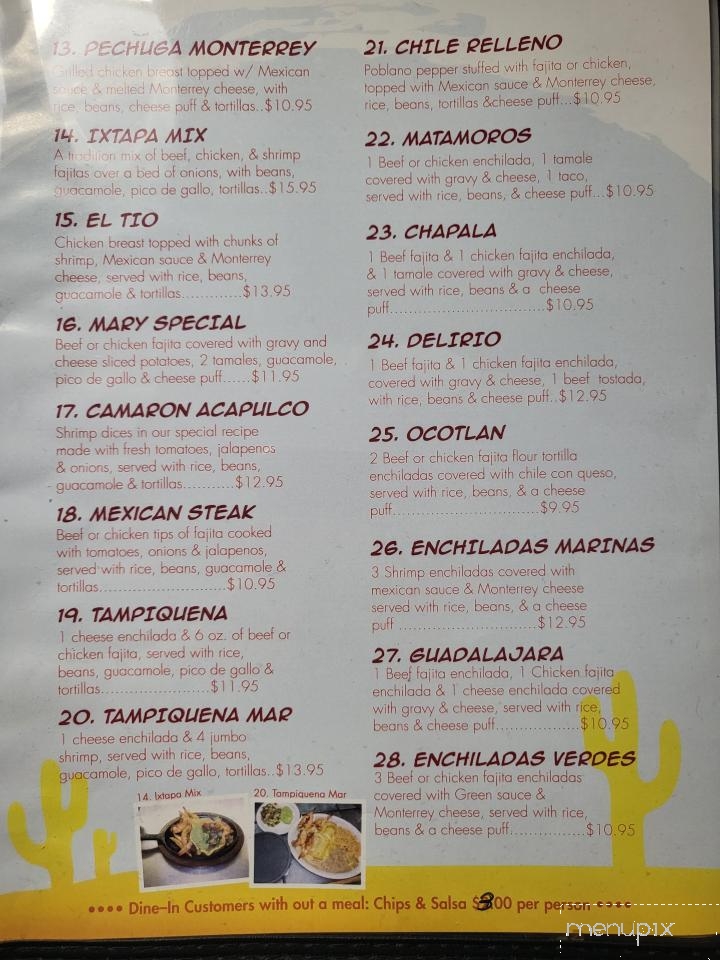 13. PECHUGA MONTERREY
Grilled chicken breast topped w/ Mexican
sauce & melted Monterrey cheese, with
rice, beans, cheese puff & tortillas..$10.95
14. IXTAPA MIX
A tradition mix of beef, chicken, & shrimp
fajitas over a bed of onions, with beans,
guacamole, pico de gallo, tortillas..$15.95
15. EL TIO
Chicken breast topped with chunks of
shrimp, Mexican sauce & Monterrey
cheese, served with rice, beans,
guacamole & tortillas............$13.95
16. MARY SPECIAL
Beef or chicken fajita covered with gravy and
cheese sliced potatoes, 2 tamales, guacamole,
pico de gallo & cheese puff......$11.95
17. CAMARON ACAPULCO
Shrimp dices in our special recipe
made with fresh tomatoes, jalapenos
& onions, served with rice, beans,
guacamole & tortillas..........$12.95
18. MEXICAN STEAK
Beef or chicken tips of fajita cooked
with tomatoes, onions & jalapenos,
served with rice, beans, guacamole &
tortillas.......................$10.95
19. TAMPIQUENA
1 cheese enchilada & 6 oz. of beef or
chicken fajita, served with rice,
beans, guacamole, pico de gallo &
tortillas......................$11.95
20. TAMPIQUENA MAR
1 cheese enchilada & 4 jumbo
shrimp, served with rice, beans,
guacamole, pico de gallo, tortillas..$13.95
14. Ixtapa Mix
20. Tampiquena Mar
21. CHILE RELLENO
Poblano pepper stuffed with fajita or chicken,
topped with Mexican sauce & Monterrey cheese,
rice, beans, tortillas &cheese puff...$10.95
22. MATAMOROS
1 Beef or chicken enchilada, 1 tamale
covered with gravy & cheese, 1 taco,
served with rice, beans, & cheese puff...$10.95
23. CHAPALA
1 Beef fajita & 1 chicken fajita enchilada,
& 1 tamale covered with gravy & cheese,
served with rice, beans & a cheese
puff...............................$10.95
24. DELIRIO
1 Beef fajita & 1 chicken fajita enchilada,
covered with gravy & cheese, 1 beef tostada,
with rice, beans & cheese puff..$12.95
25. OCOTLAN
2 Beef or chicken fajita flour tortilla
enchiladas covered with chile con queso,
served with rice, beans, & a cheese
puff.................................$9.95
26. ENCHILADAS MARINAS
3 Shrimp enchiladas covered with
mexican sauce & Monterrey cheese
served with rice, beans, & a cheese
puff ............................$12.95
27. GUADALAJARA
1 Beef fajita enchilada, 1 Chicken fajita
enchilada & 1 cheese enchilada covered
with gravy & cheese, served with rice,
beans & cheese puff.................$10.95
28. ENCHILADAS VERDES
3 Beef or chicken fajita enchiladas
covered with Green sauce &
Monterrey cheese, served with rice,
beans & a cheese puff...............$10.95
•••• Dine-In Customers with out a meal: Chips & Salsa $3.00 per person ••••
menupix